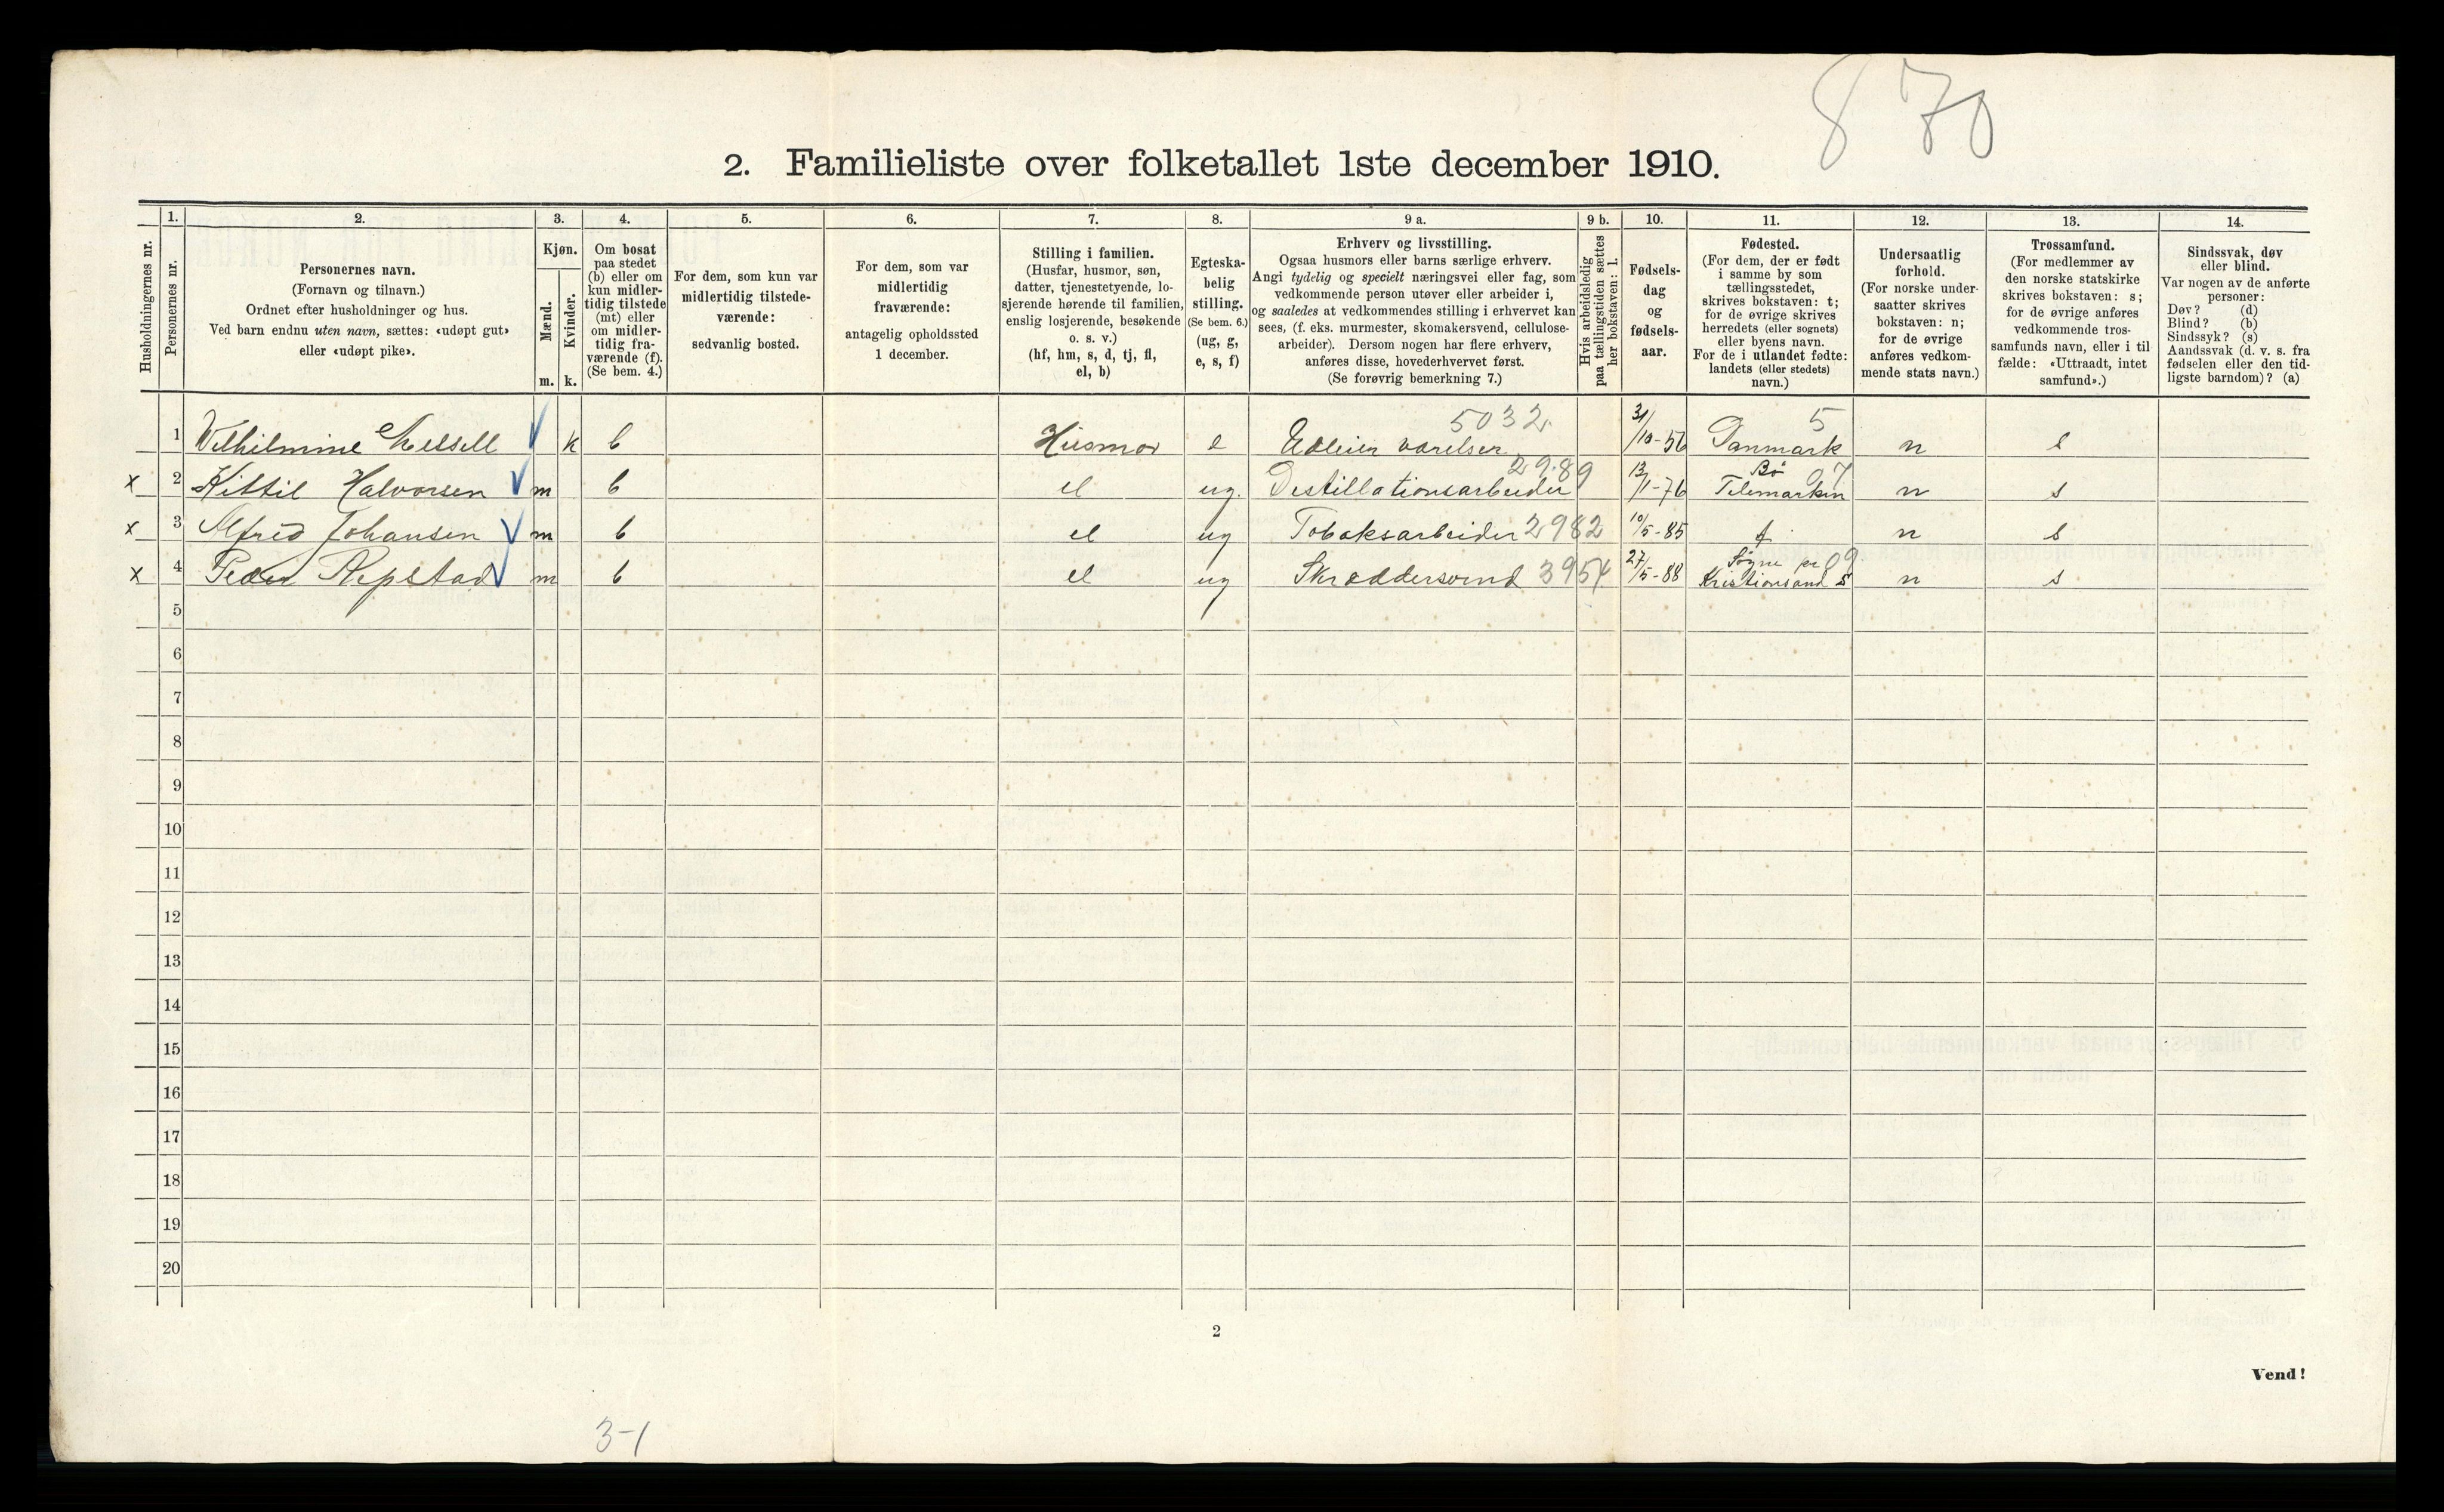 870
2. Familieliste over folketallet 1ste december 1910.
Husholdningernes nr.
1.
Personernes nr.
2.
Personernes navn.
(Fornavn og tilnavn.)
Ordnet efter husholdninger og hus.
Ved barn endnu uten navn, sættes: «udøpt gut»
eller «udøpt pike».
3.
Kjøn.
Mænd.
m.
Kvinder.
k.
4.
Om bosat
paa stedet
(b) eller om
kun midler-
tidig tilstede
(mt) eller
om midler-
tidig fra-
værende (f).
(Se bem. 4.)
5.
For dem, som kun var
midlertidig tilstede-
værende:
sedvanlig bosted.
6.
For dem, som var
midlertidig
fraværende:
antagelig opholdssted
1 december.
7.
Stilling i familien.
(Husfar, husmor, søn,
datter, tjenestetyende, lo-
sjerende hørende til familien,
enslig losjerende, besøkende
o. s. v.)
(hf, hm, s, d, tj, fl,
el, b)
8.
Egteska-
belig
stilling.
(Se bem. 6.)
(ug, g,
e, s, f)
9 a.
Erhverv og livsstilling.
Ogsaa husmors eller barns særlige erhverv.
Angi tydelig og specielt næringsvei eller fag, som
vedkommende person utøver eller arbeider i,
og saaledes at vedkommendes stilling i erhvervet kan
sees, (f. eks. murmester, skomakersvend, cellulose-
arbeider). Dersom nogen har flere erhverv,
anføres disse, hovederhvervet først.
(Se forøvrig bemerkning 7.)
9 b.
Hvis arbeidsledig
paa tællingstiden sættes
her bokstaven: l.
10.
Fødsels-
dag
og
fødsels-
aar.
11.
Fødested.
(For dem, der er født
i samme by som
tællingsstedet,
skrives bokstaven: t;
for de øvrige skrives
herredets (eller sognets)
eller byens navn.
For de i utlandet fødte:
landets (eller stedets)
navn.)
12.
Undersaatlig
forhold.
(For norske under-
saatter skrives
bokstaven: n;
for de øvrige
anføres vedkom-
mende stats navn.)
13.
Trossamfund.
(For medlemmer av
den norske statskirke
skrives bokstaven: s;
for de øvrige anføres
vedkommende tros-
samfunds navn, eller i til
fælde: «Uttraadt, intet
samfund».)
14.
Sindssvak, døv
eller blind.
Var nogen av de anførte
personer:
Døv? (d)
Blind? (b)
Sindssyk? (s)
Aandssvak (d. v. s. fra
fødselen eller den tid-
ligste barndom)? (a)
5032. 5
1 k b Husmor e værelser 31/10-56 Danmark n s
2989 Bø 07
x 2 Kittil Halvorsen m b el ug. Destillationsarbeider 13/1-76 Telemarken n s
x 3 Alfred Johansen m b el ug Tobaksarbeider 2982 10/5-85 t. n s
Søgne pr 09
x 4 Peder Repstad m b el ug Skræddersvend 3954 27/5-88 Kristiansand S n s
5
6
7
8
9
10
11
12
13
14
15
16
17
18
19
20
2
Vend!
3-1